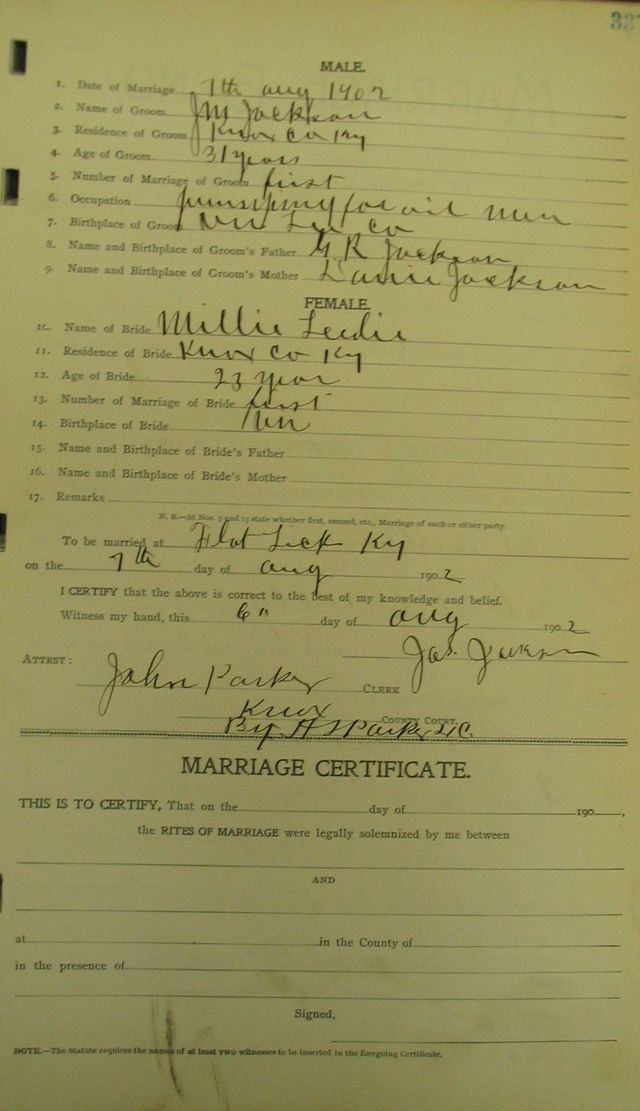 337
MALE.
1. Date of Marriage 7th aug 1902
2. Name of Groom JM Jackson
3. Residence of Groom Knox Co Ky
4. Age of Groom 31 years
5. Number of Marriage of Groom first
6. Occupation for oil men
7. Birthplace of Groom Lee Co
8. Name and Birthplace of Groom's Father G R Jackson
9. Name and Birthplace of Groom's Mother Jackson
FEMALE.
10. Name of Bride Millie Ledie
11. Residence of Bride Knox Co Ky
12. Age of Bride 23 year
13. Number of Marriage of Bride first
14. Birthplace of Bride
15. Name and Birthplace of Bride's Father
16. Name and Birthplace of Bride's Mother
17. Remarks
N. B.—At Nos. 5 and 13 state whether first, second, etc., Marriage of each or either party.
To be married at Flat Lick Ky
on the 7th day of aug 1902
I CERTIFY that the above is correct to the best of my knowledge and belief.
Witness my hand, this 6" day of aug 1902
Jas. Jackson
ATTEST: John Parker CLERK
Knox COUNTY COURT.
By Parker D.C.
MARRIAGE CERTIFICATE.
THIS IS TO CERTIFY, That on the day of 190 ,
the RITES OF MARRIAGE were legally solemnized by me between
AND
at in the County of
in the presence of
Signed,
NOTE.—The Statute requires the names of at least two witnesses to be inserted in the foregoing Certificate.